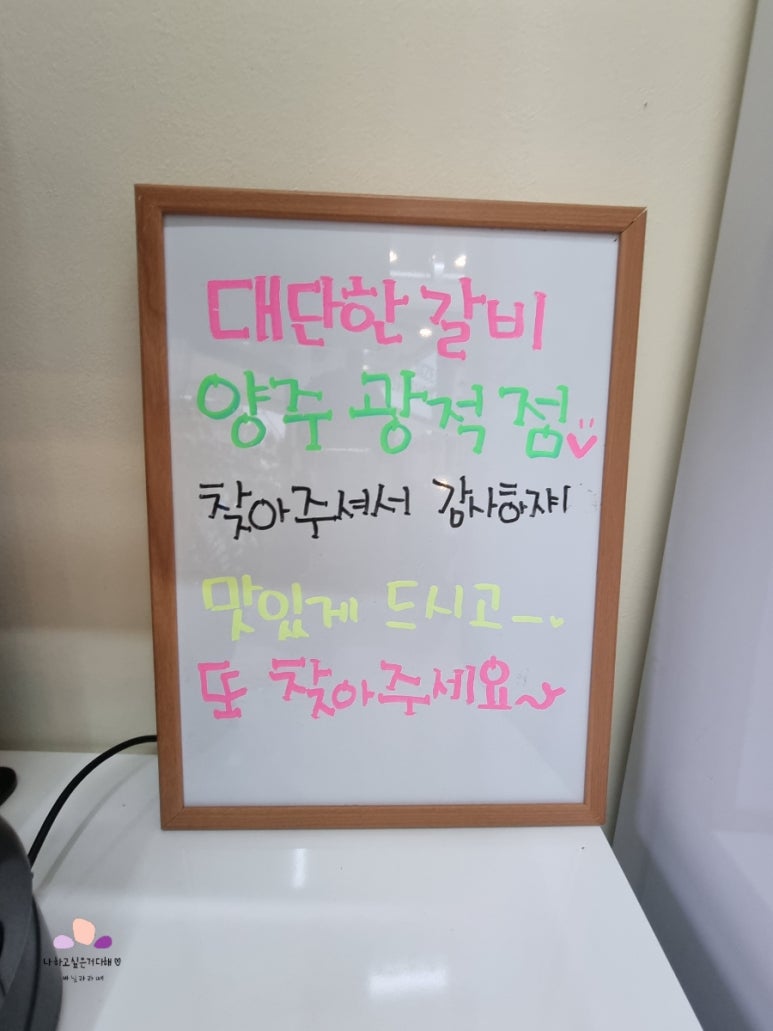 대단한 갈비
양주 광적점
찾아주셔서 감사하쟈!
맛있게 드시고—
또 찾아주세요~
나하고싶은거다해♡
바닐라라떼